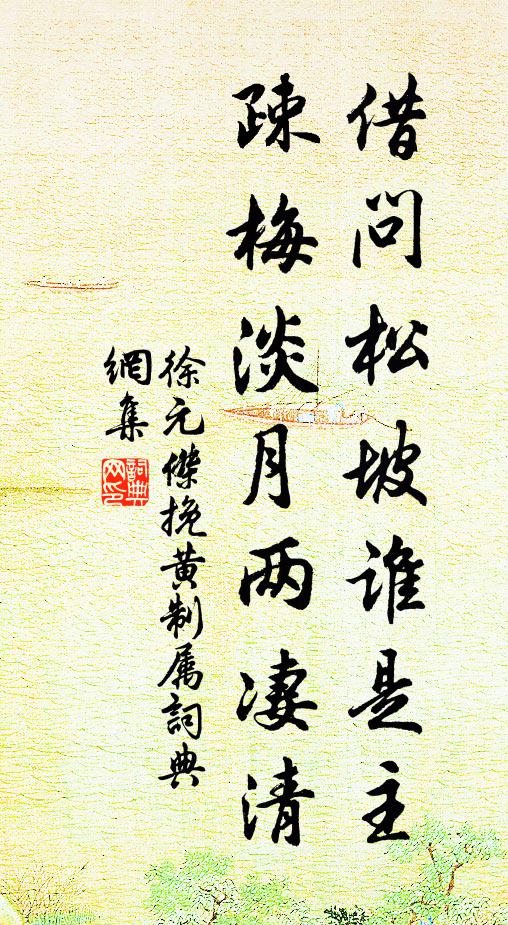 借问松坡谁是主
疎梅淡月两凄清
徐元傑挽黄制属詞典
網集
詞典
网印